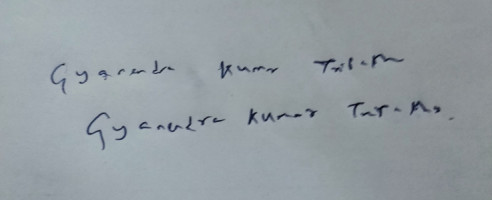 Gyanendra Kumar Tripathi
Gyanendra Kumar Tripathi.